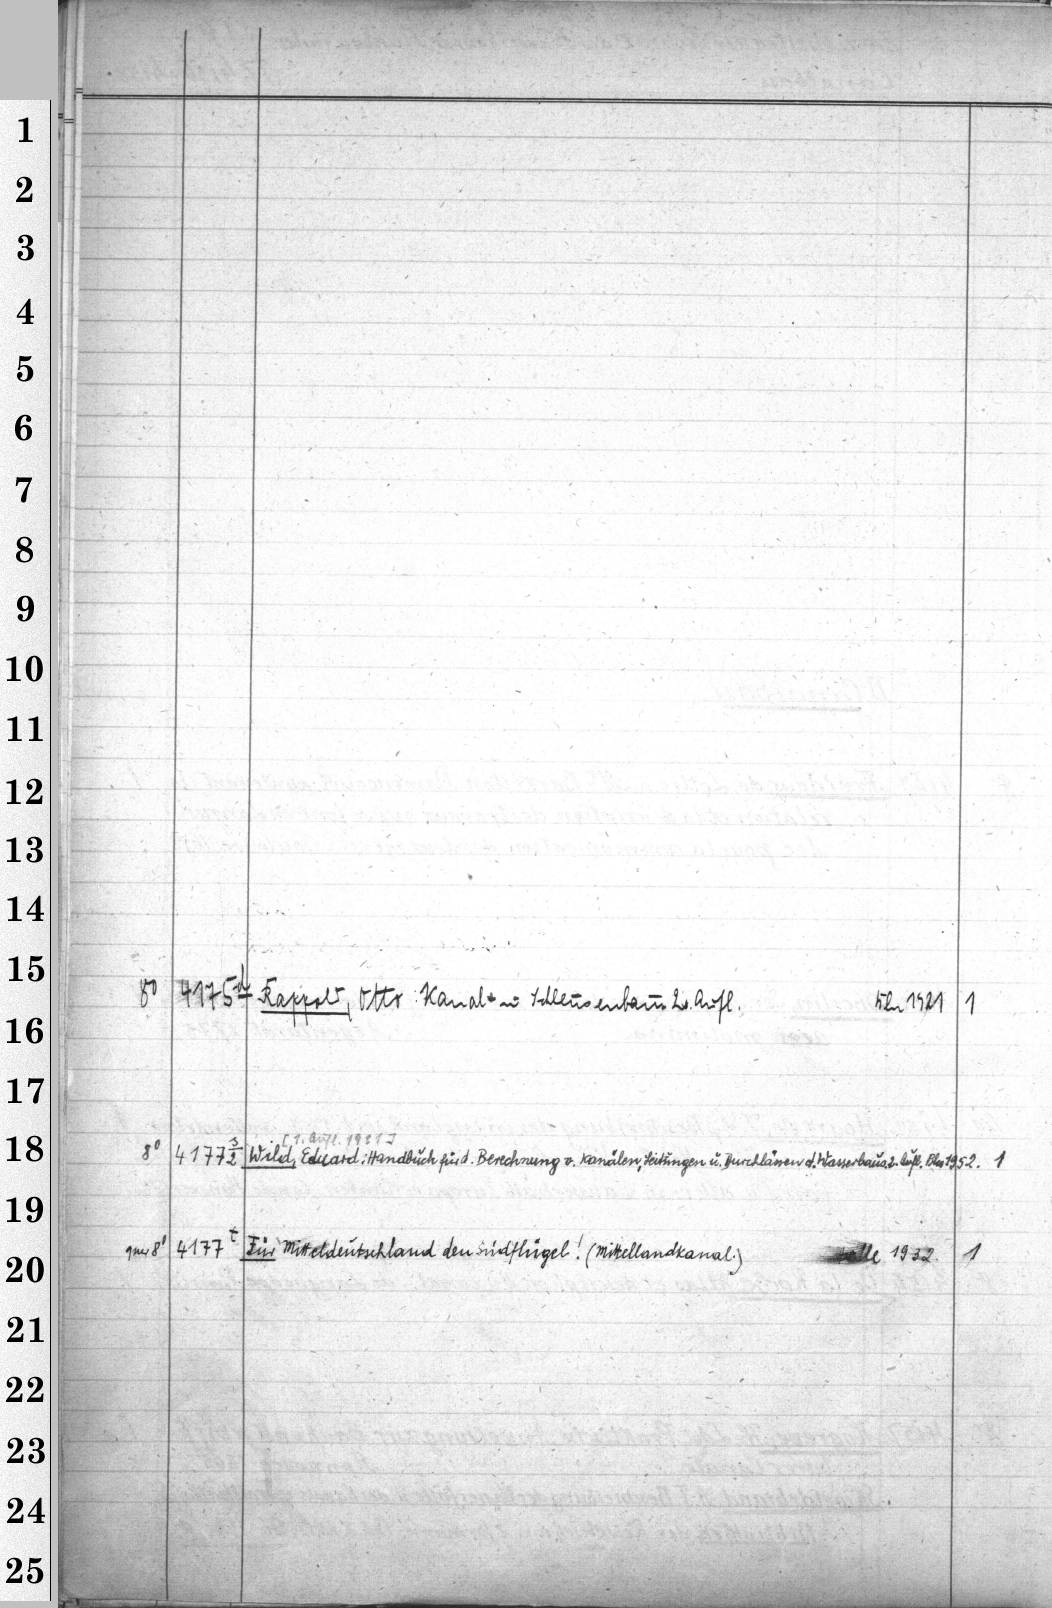 1
2
3
4
5
6
7
8
9
10
11
12
13
14
15
8° 4175 d Rappold, Otto: Kanal- u Schleusenbau. 2. Aufl. Bln 1921 1
16
17
[1. Aufl. 1931]
18
8° 4177 s/2 Wild, Eduard: Handbuch für d. Berechnung v. Kanälen, Leitungen u. Durchlässen d. Wasserbaus. 2. Aufl. Bln 1952. 1
19
quer 8° 4177 t Für Mitteldeutschland den Südflügel! (Mittellandkanal.) Halle 1932. 1
20
21
22
23
24
25